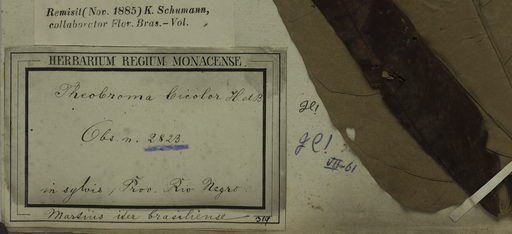 Remisit (Nov. 1885) K. Schumann,
collaborator Flor. Bras. – Vol.
HERBARIUM REGIUM MONACENSE.
Theobroma bicolor H. d B
Obs. n. 2823.
in sylvis, Prov. Rio Negro
Martius iter brasiliense
gc!
gc!
VII-61